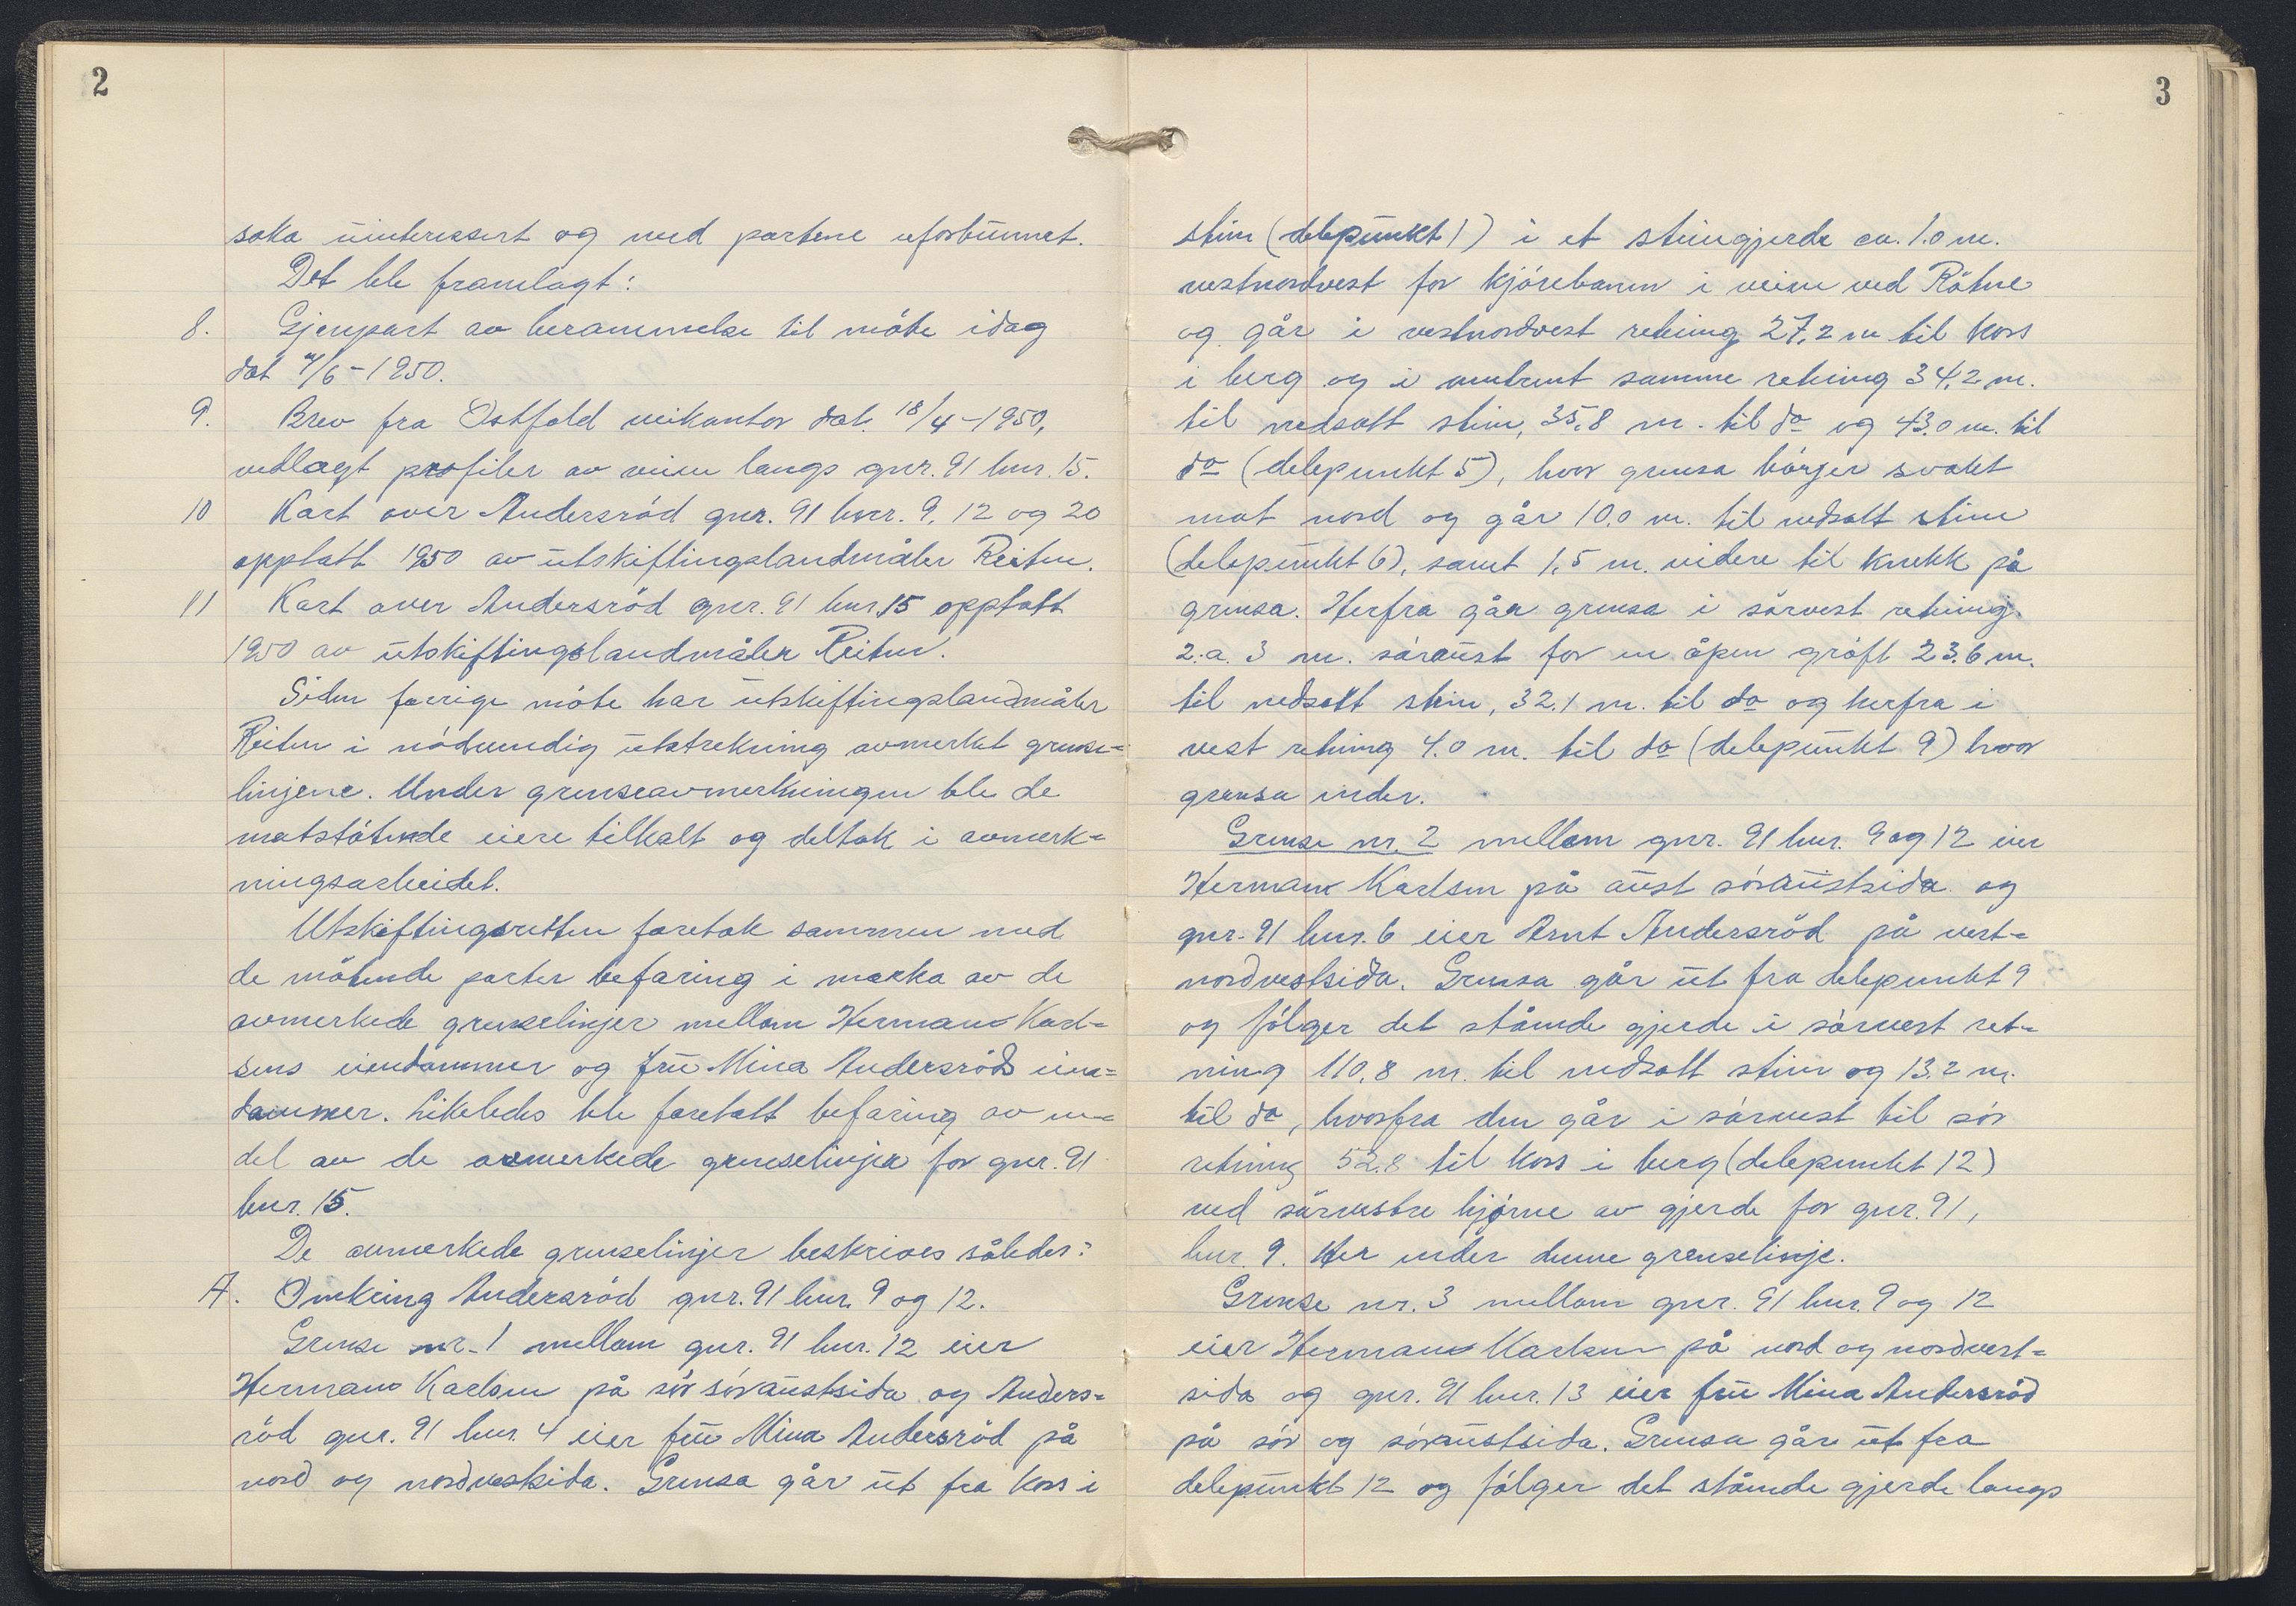 2
saka uinteressert og med partene uforbunnet.
Det ble framlagt:
8. Gjenpart av berammelse til möte idag
dat 7/6-1950.
9. Brev fra Østfold veikontor dat. 18/4-1950,
vedlagt profiler av veien langs gnr. 91 bnr. 15.
10 Kart over Andersröd gnr. 91 bnr. 9, 12 og 20
opptatt 1950 av utskiftingslandmåler Reiten.
11 Kart over Andersröd gnr. 91 bnr. 15 opptatt
1950 av utskiftingslandmåler Reiten.
Siden forrige möte har utskiftingslandmåler
Reiten i nödvendig utstrekning avmerket grense=
linjene. Under grenseavmerkningen ble de
motstötende eiere tilkalt og deltok i avmerk=
ningsarbeidet.
Utskiftingsretten foretok sammen med
de mötende parter befaring i marka av de
avmerkede grenselinjer mellom Herman Karl=
sens eiendommer og fru Mina Andersröds eien=
dommer. Likeledes ble foretatt befaring av en
del av de avmerkede grenselinjer for gnr. 91
bnr. 15.
De avmerkede grenselinjer beskrives således:
A. Omkring Andersröd gnr. 91 bnr. 9 og 12.
Grense nr. 1 mellom gnr. 91 bnr. 12 eier
Herman Karlsen på sör söraustsida og Anders=
röd gnr. 91 bnr. 4 eier fru Mina Andersröd på
nord og nordvestsida. Grensa går ut fra kors i
3
stein (delepunkt 1) i et steingjerde ca. 1.0 m.
vestnordvest for kjörebanen i veien ved Råtne
og går i vestnordvest retning 27,2 m til kors
i berg og i omtrent samme retning 34,2 m.
til nedsatt stein, 35,8 m. til do og 43.0 m. til
do (delepunkt 5), hvor grensa böyer svakt
mot nord og går 10.0 m. til nedsatt stein
(delepunkt 6), samt 1,5 m. videre til knekk på
grensa. Herfra går grensa i sörvest retning
2 a 3 m. söraust for en åpen gröft 23.6 m.
til nedsatt stein, 32.1 m. til do og herfra i
vest retning 4.0 m. til do (delepunkt 9) hvor
grensa ender.
Grense nr. 2 mellom gnr. 91 bnr. 9 og 12 eier
Herman Karlsen på aust söraustsida og
gnr. 91 bnr. 6 eier Arnt Andersröd på vest=
nordvestsida. Grensa går ut fra delepunkt 9
og fölger det stående gjerde i sörvest ret=
ning 110,8 m. til nedsatt stein og 13.2 m.
til do, hvorfra den går i sörvest til sör
retning 52.8 til kors i berg (delepunkt 12)
ved sörvestre hjörne av gjerde for gnr. 91,
bnr. 9. Her ender denne grenselinje.
Grense nr. 3 mellom gnr. 91 bnr. 9 og 12
eier Herman Karlsen på nord og nordvest=
sida og gnr. 91 bnr. 13 eier fru Mina Andersröd
på sör og söraustsida. Grensa går ut fra
delepunkt 12 og fölger det stående gjerde langs